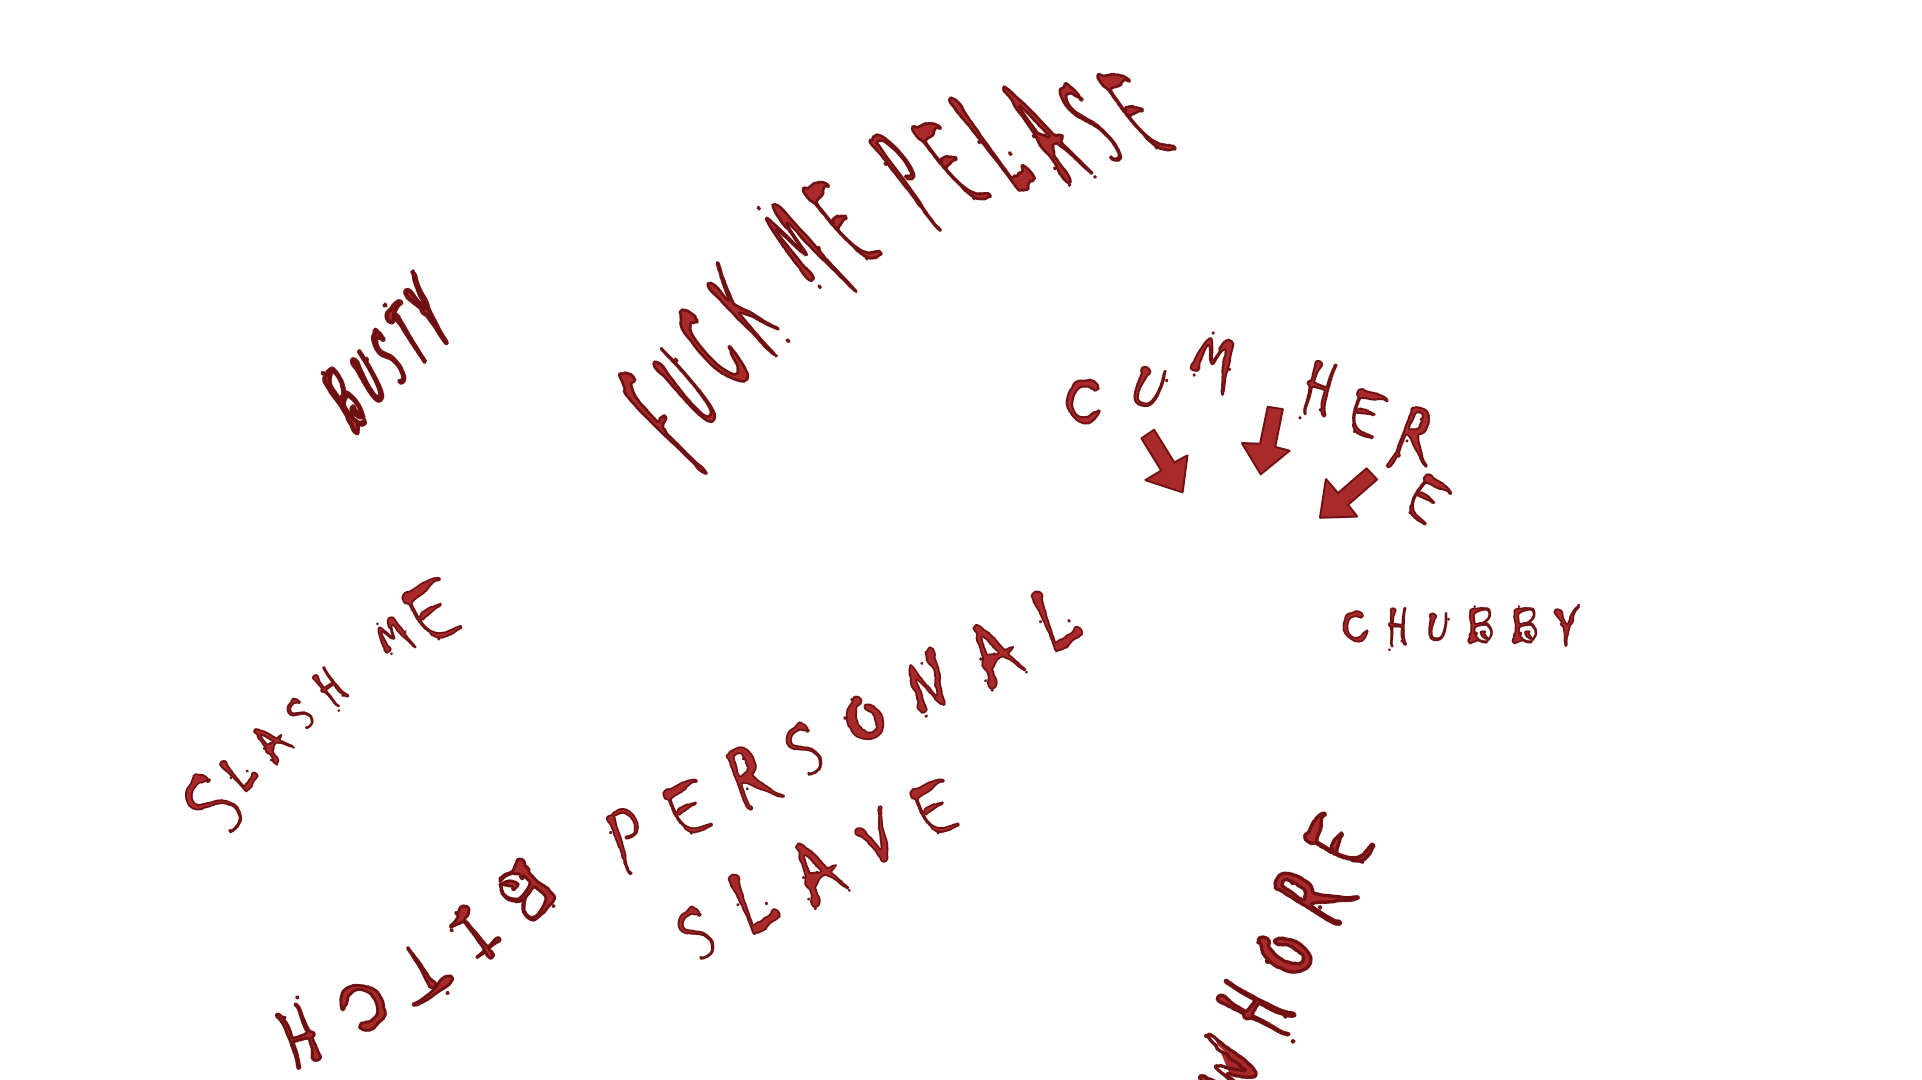 FUCK ME PELASE
BUSTY
CUM HERE
SLASH ME
CHUBBY
PERSONAL
SLAVE
BITCH
WHORE